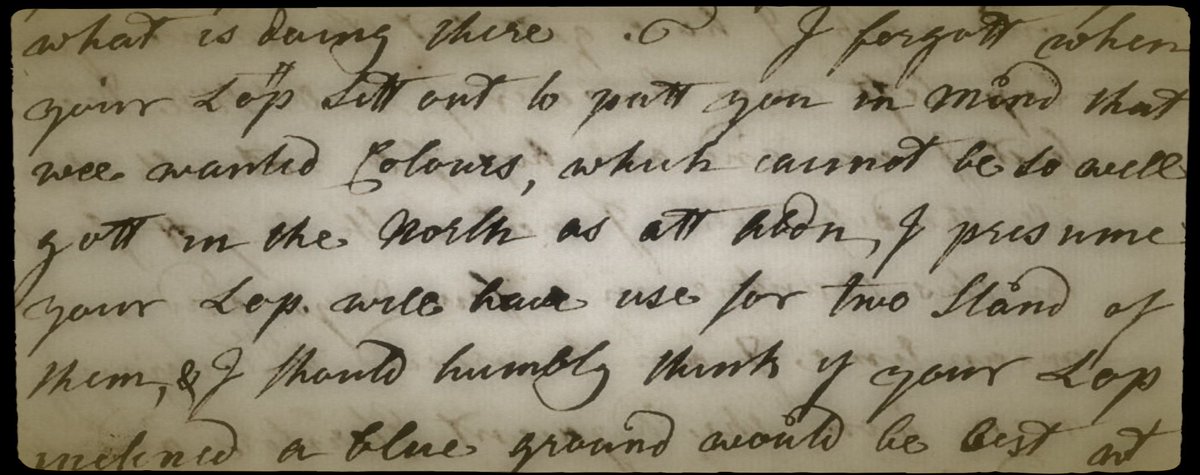 what is doing there I forgott when
your Lop sett out to putt you in mind that
wee wanted Colours, which cannot be so well
gott in the North as att Abdn, I presume
your Lop. will have use for two Stand of
them, & I should humbly think if your Lop
inclined a blue ground would be best wt